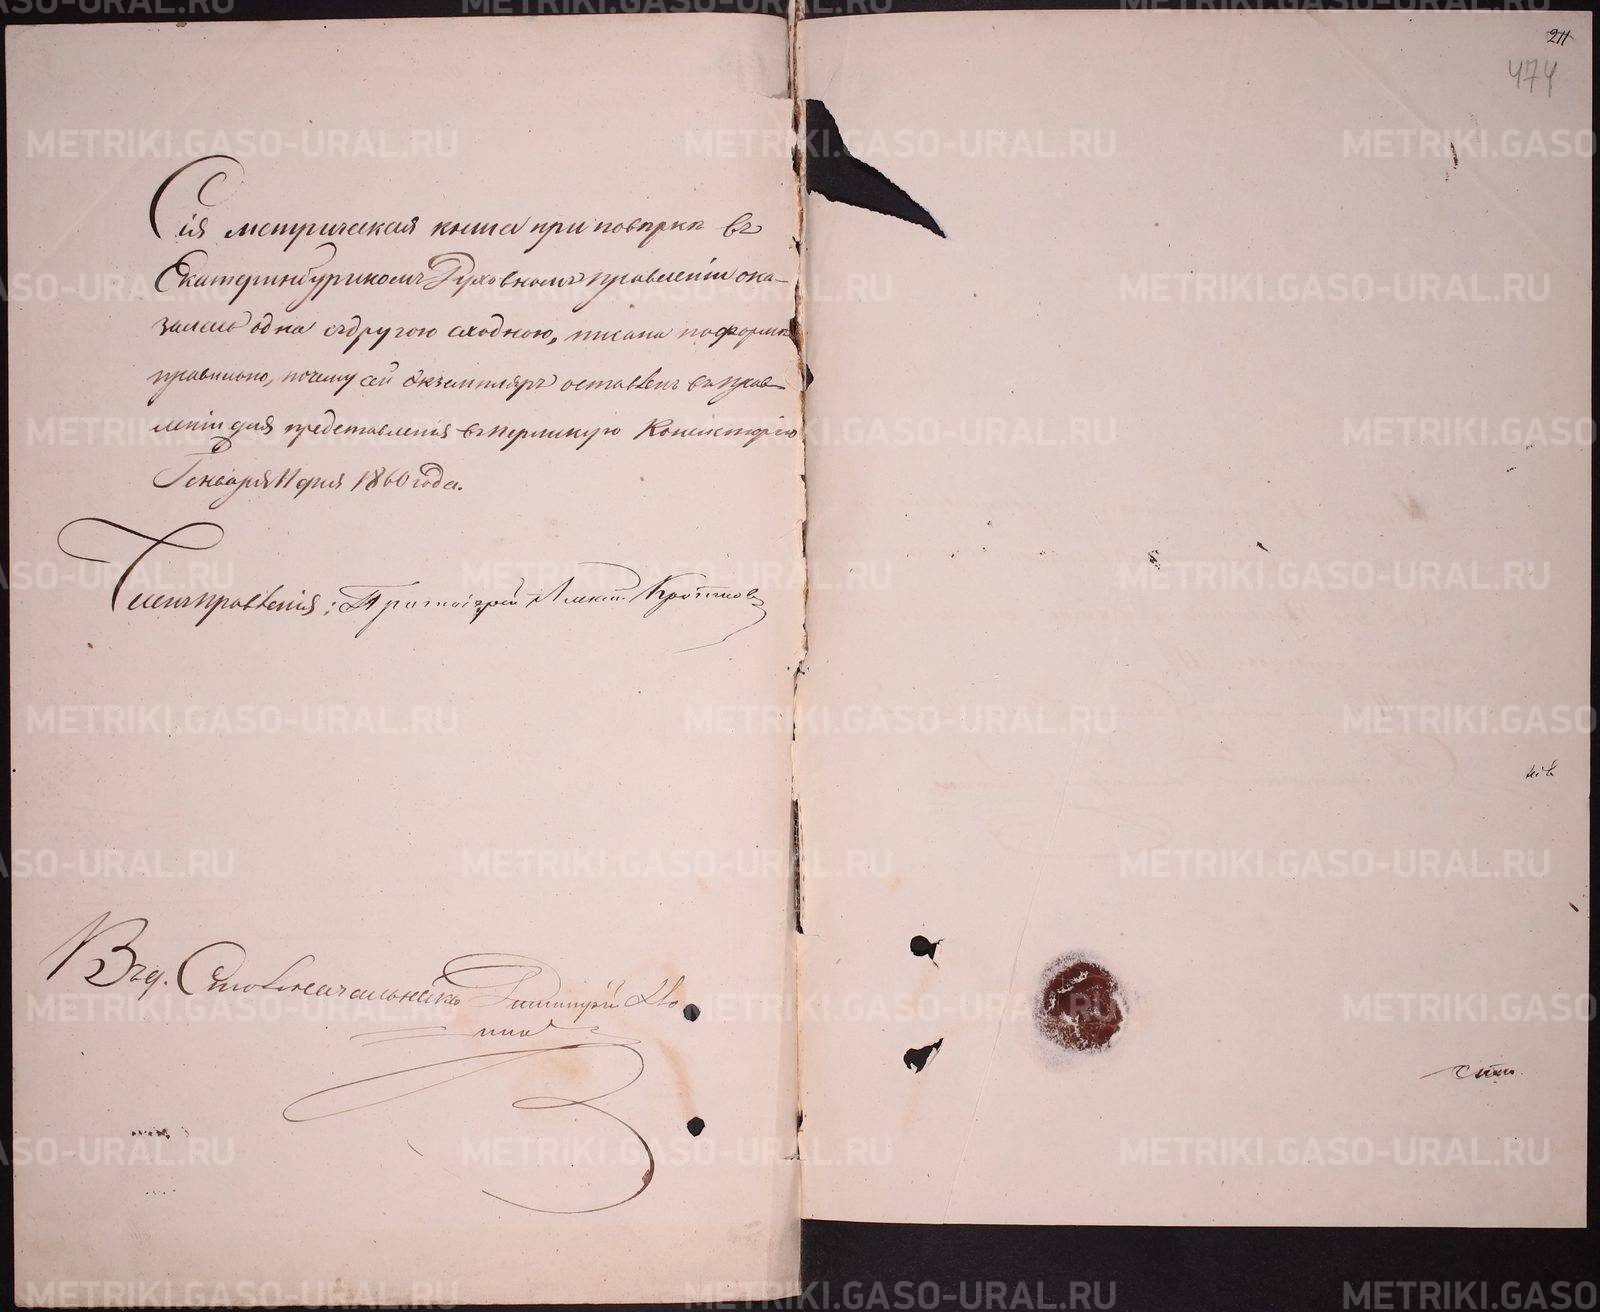 211
474
Сія метрическая книга при повѣркѣ въ
Екатеринбургскомъ Духовномъ правленіи ока-
залась одна съ другою сходною, писана по формѣ
правильно, почему сей экземпляръ оставленъ въ прав-
леніи для представленія въ Пермскую Консисторію
Генваря 11 дня 1860 года.
Членъ правленія: Протоіерей Алексій
Столоначальникъ Димитрій
METRIKI.GASO-URAL.RU